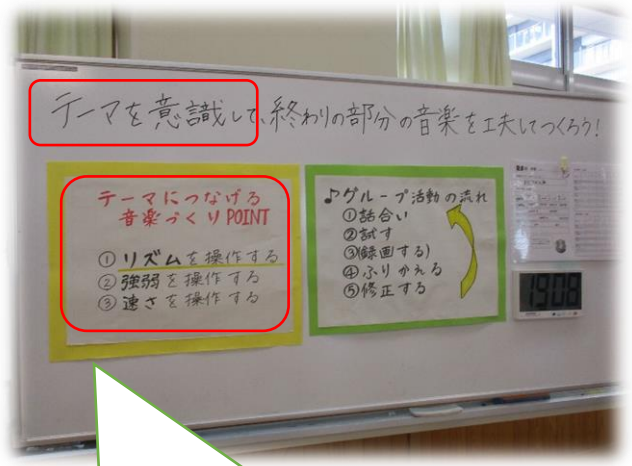 テーマを意識して、終わりの部分の音楽を工夫してつくろう!
テーマにつなげる
音楽づくりPOINT
①リズムを操作する
②強弱を操作する
③速さを操作する
♪グループ活動の流れ
①話合い
②試す
③(録画する)
④ふりかえる
⑤修正する